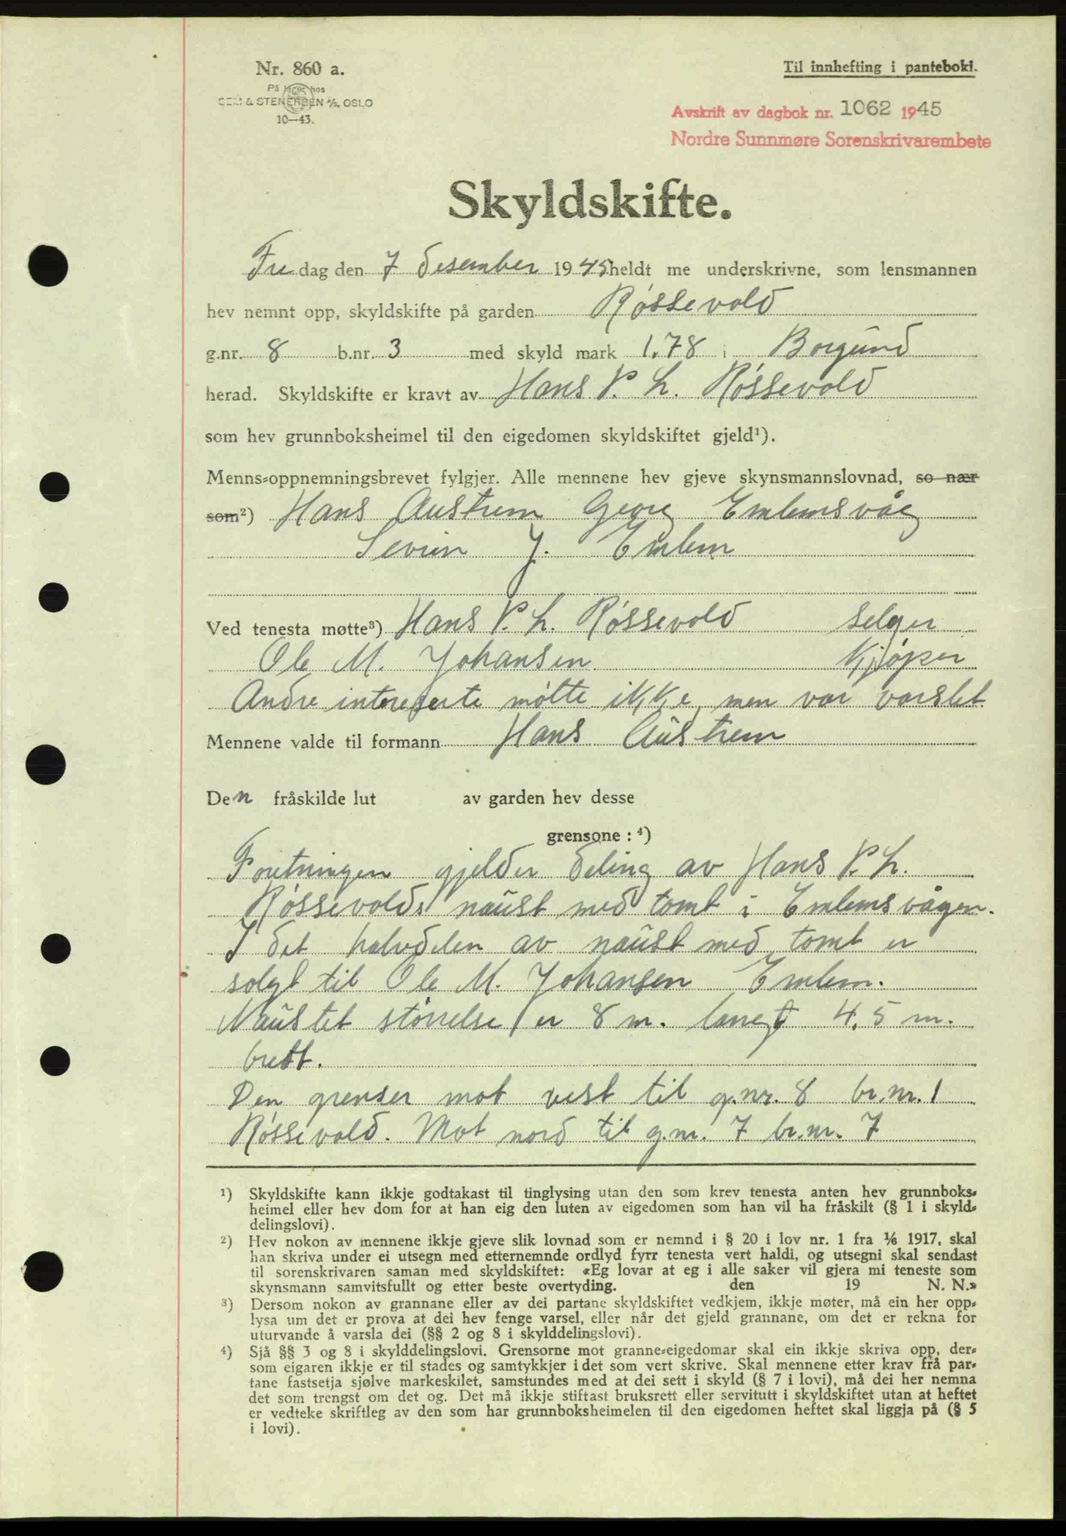 Nr. 860 a.
På lager hos
SEM & STENERSEN A/S, OSLO
10—43.
Til innhefting i pantebok.
Avskrift av dagbok nr. 1062 1945
Nordre Sunnmøre Sorenskrivarembete
Skyldskifte.
Fredag den 7 desember 1945 heldt me underskrivne, som lensmannen
hev nemnt opp, skyldskifte på garden Røssevold
g.nr. 8 b.nr. 3 med skyld mark 1.78 i Borgund
herad. Skyldskifte er kravt av Hans P. L. Røssevold
som hev grunnboksheimel til den eigedomen skyldskiftet gjeld¹).
Menns-oppnemningsbrevet fylgjer. Alle mennene hev gjeve skynsmannslovnad, so nær
som²) Hans Austrem Georg Emlemsvåg
Sevrin J. Emlem
Ved tenesta møtte³) Hans P. L. Røssevold selger
Ole M. Johansen kjøper
Andre intereserte møtte ikke, men var varslet
Mennene valde til formann Hans Austrem
Den fråskilde lut av garden hev desse
grensone: ⁴)
Foretningen gjelder deling av Hans P. L.
Røssevolds naust med tomt i Emlemsvågen.
I det halvdelen av naust med tomt er
solgt til Ole M. Johansen Emlem.
Naustet størrelse er 8 m. langt 4.5 m.
brett.
Den grenser mot vest til g.nr. 8 br.nr. 1
Røssevold. Mot nord til g.nr. 7 br.nr. 7
¹) Skyldskifte kann ikkje godtakast til tinglysing utan den som krev tenesta anten hev grunnboks-
heimel eller hev dom for at han eig den luten av eigedomen som han vil ha fråskilt (§ 1 i skyld-
delingslovi).
²) Hev nokon av mennene ikkje gjeve slik lovnad som er nemnd i § 20 i lov nr. 1 fra ⅙ 1917, skal
han skriva under ei utsegn med etternemnde ordlyd fyrr tenesta vert haldi, og utsegni skal sendast
til sorenskrivaren saman med skyldskiftet: «Eg lovar at eg i alle saker vil gjera mi teneste som
skynsmann samvitsfullt og etter beste overtyding. den 19 N. N.»
³) Dersom nokon av grannane eller av dei partane skyldskiftet vedkjem, ikkje møter, må ein her opp-
lysa um det er prova at dei hev fenge varsel, eller når det gjeld grannane, om det er rekna for
uturvande å varsla dei (§§ 2 og 8 i skylddelingslovi).
⁴) Sjå §§ 3 og 8 i skylddelingslovi. Grensorne mot granne-eigedomar skal ein ikkje skriva opp, der-
som eigaren ikkje er til stades og samtykkjer i det som vert skrive. Skal mennene etter krav frå par-
tane fastsetja sjølve markeskilet, samstundes med at dei sett i skyld (§ 7 i lovi), må dei her nemna
det som trengst om det og. Det må ikkje stiftast bruksrett eller servitutt i skyldskiftet utan at heftet
er vedteke skriftleg av den som har grunnboksheimelen til den eigedomen heftet skal liggja på (§ 5
i lovi).